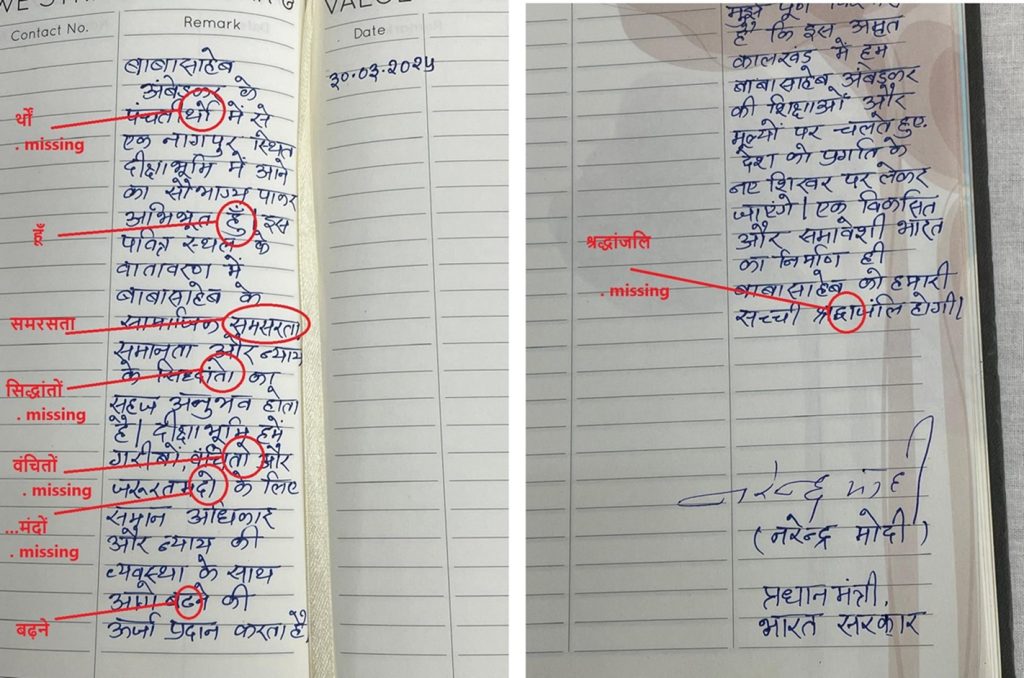 VALUE
Contact No.
Remark
Date
३०.०३.२०२५
बाबासाहेब
अंबेडकर के
पंचतीर्थो में से
एक नागपुर स्थित
दीक्षाभूमि में आने
का सौभाग्य पाकर
अभिभूत हुँ। इस
पवित्र स्थल के
वातावरण में
बाबासाहेब के
सामाजिक समसरता
समानता और न्याय
के सिद्धांतो का
सहज अनुभव होता
है। दीक्षाभूमि हमें
गरीबों, वंचितो और
जरूरतमंदो के लिए
समान अधिकार
और न्याय की
व्यवस्था के साथ
आगे बढने की
ऊर्जा प्रदान करता है,
र्थों
. missing
हूँ
समरसता
सिद्धांतों
. missing
वंचितों
. missing
...मंदों
. missing
बढ़ने
मुझे पूर्ण
है कि इस अमृत
कालखंड में हम
बाबासाहेब अंबेडकर
की शिक्षाओं और
मूल्यों पर चलते हुए
देश को प्रगति के
नए शिखर पर लेकर
जाएंगे। एक विकसित
और समावेशी भारत
का निर्माण ही
बाबासाहेब को हमारी
सच्ची श्रद्धाजंलि होगी।
श्रद्धांजलि
. missing
नरेन्द्र मोदी
(नरेन्द्र मोदी)
प्रधानमंत्री,
भारत सरकार